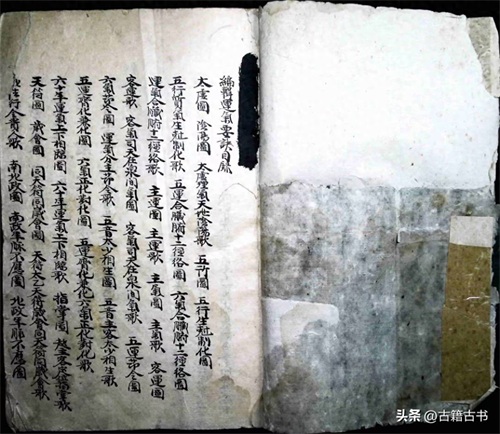 編輯運氣要訣目錄
太虛圖 陰陽圖 太虛理氣天地陰陽歌 五行圖 五行生剋制化圖
五行質氣生剋制化歌 五運合臟腑十二經絡圖 六氣合臟腑十二經絡圖
運氣合臟腑十二經絡歌 主運圖 主運歌 主氣圖 主氣歌 客運圖
客運歌 客氣司天在泉間氣圖 客氣司天在泉間氣歌 五運節令圖
六氣節令圖 運氣分主節令歌 五音太少相生圖 五音主客太少相生歌
五運齊化兼化圖 六氣正化對化圖 五運齊化兼化六氣正化對化歌
六十年運氣上下相臨圖 六十年運氣上下相臨歌 指掌圖 起主客定位指掌歌
天符圖 歲會圖 同天符同歲會圖 天符太乙天符歲會同天符同歲會歌
行令貴人歌 南北政圖 南政年脈不應圖 北政年脈不應圖
头条 @古籍古书